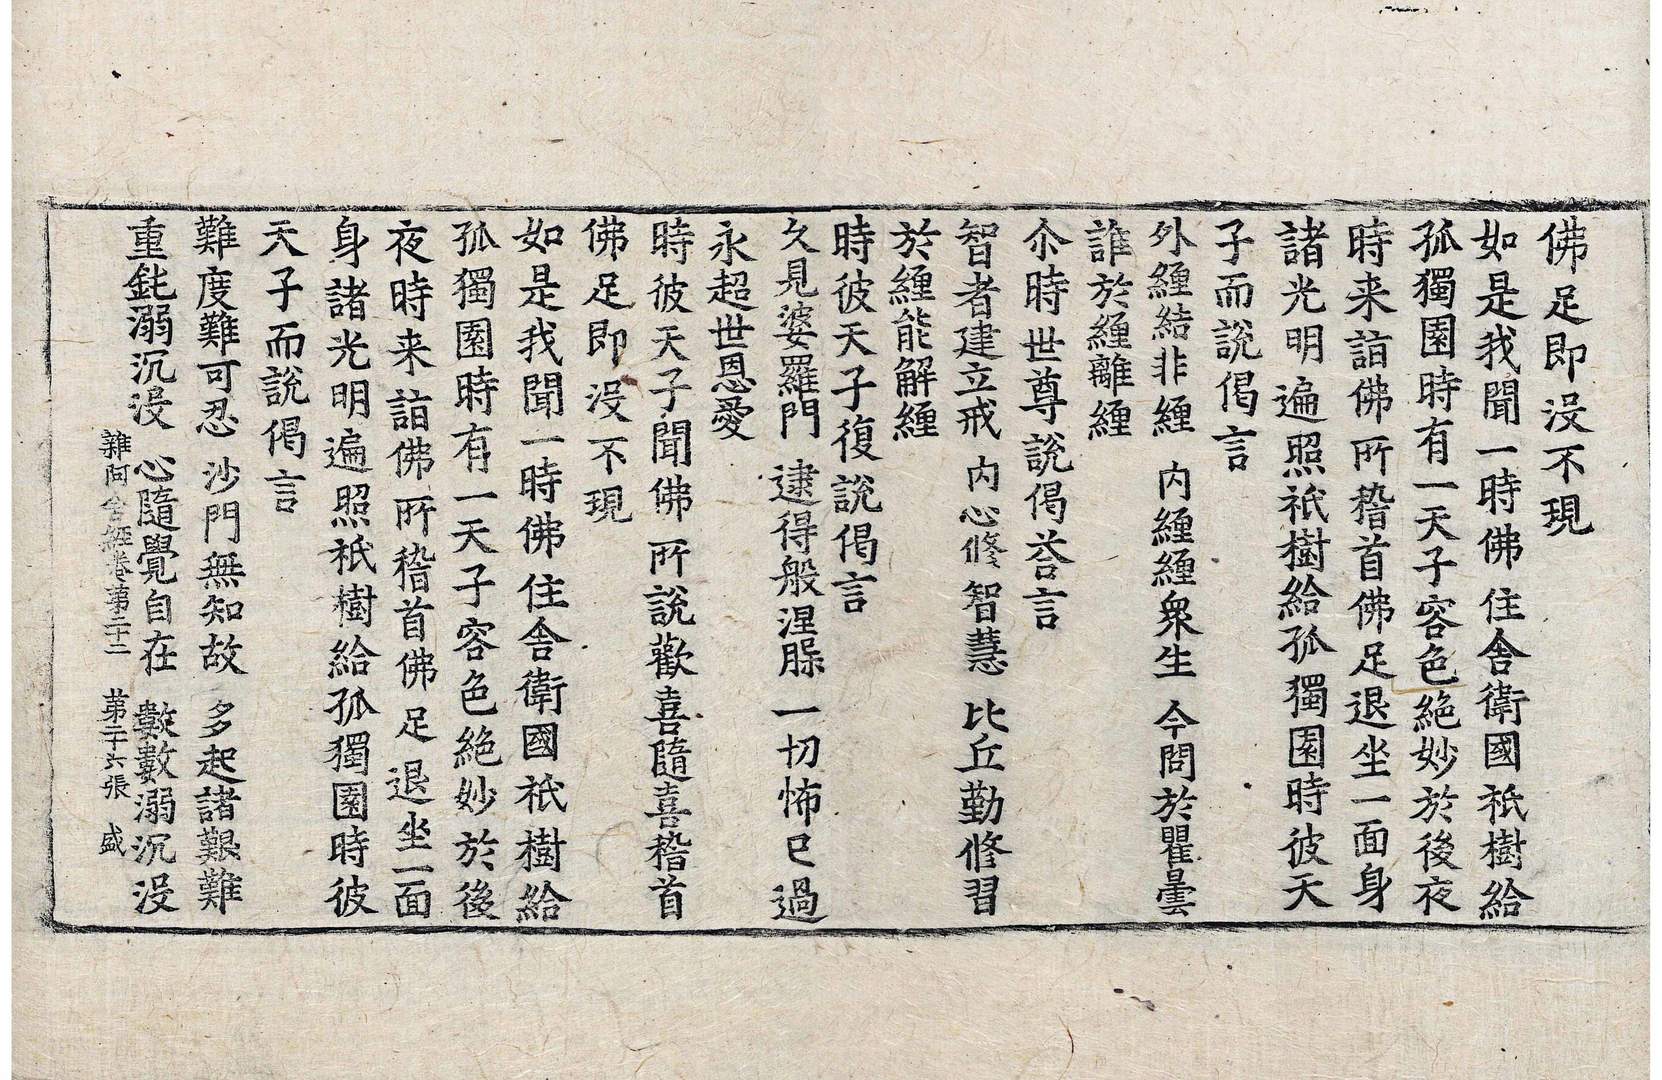 佛足即没不現
如是我聞一時佛住舎衛國祇樹給
孤獨園時有一天子容色絶妙於後夜
時来詣佛所稽首佛足退坐一面身
諸光明遍照祇樹給孤獨園時彼天
子而說偈言
外纏結非纏 内纏纏衆生 今問於瞿曇
誰於纏離纏
尒時世尊說偈荅言
智者建立戒 内心修智慧 比丘勤修習
於纏能解纏
時彼天子復說偈言
久見婆羅門 逮得般涅槃 一切怖已過
永超世恩愛
時彼天子聞佛所說歡喜隨喜稽首
佛足即没不現
如是我聞一時佛住舎衛國祇樹給
孤獨園時有一天子容色絶妙於後
夜時来詣佛所稽首佛足退坐一面
身諸光明遍照祇樹給孤獨園時彼
天子而說偈言
難度難可忍 沙門無知故 多起諸艱難
重鈍溺沉没 心隨覺自在 數數溺沉没
雜阿含經卷第二十二 第二十六張 盛